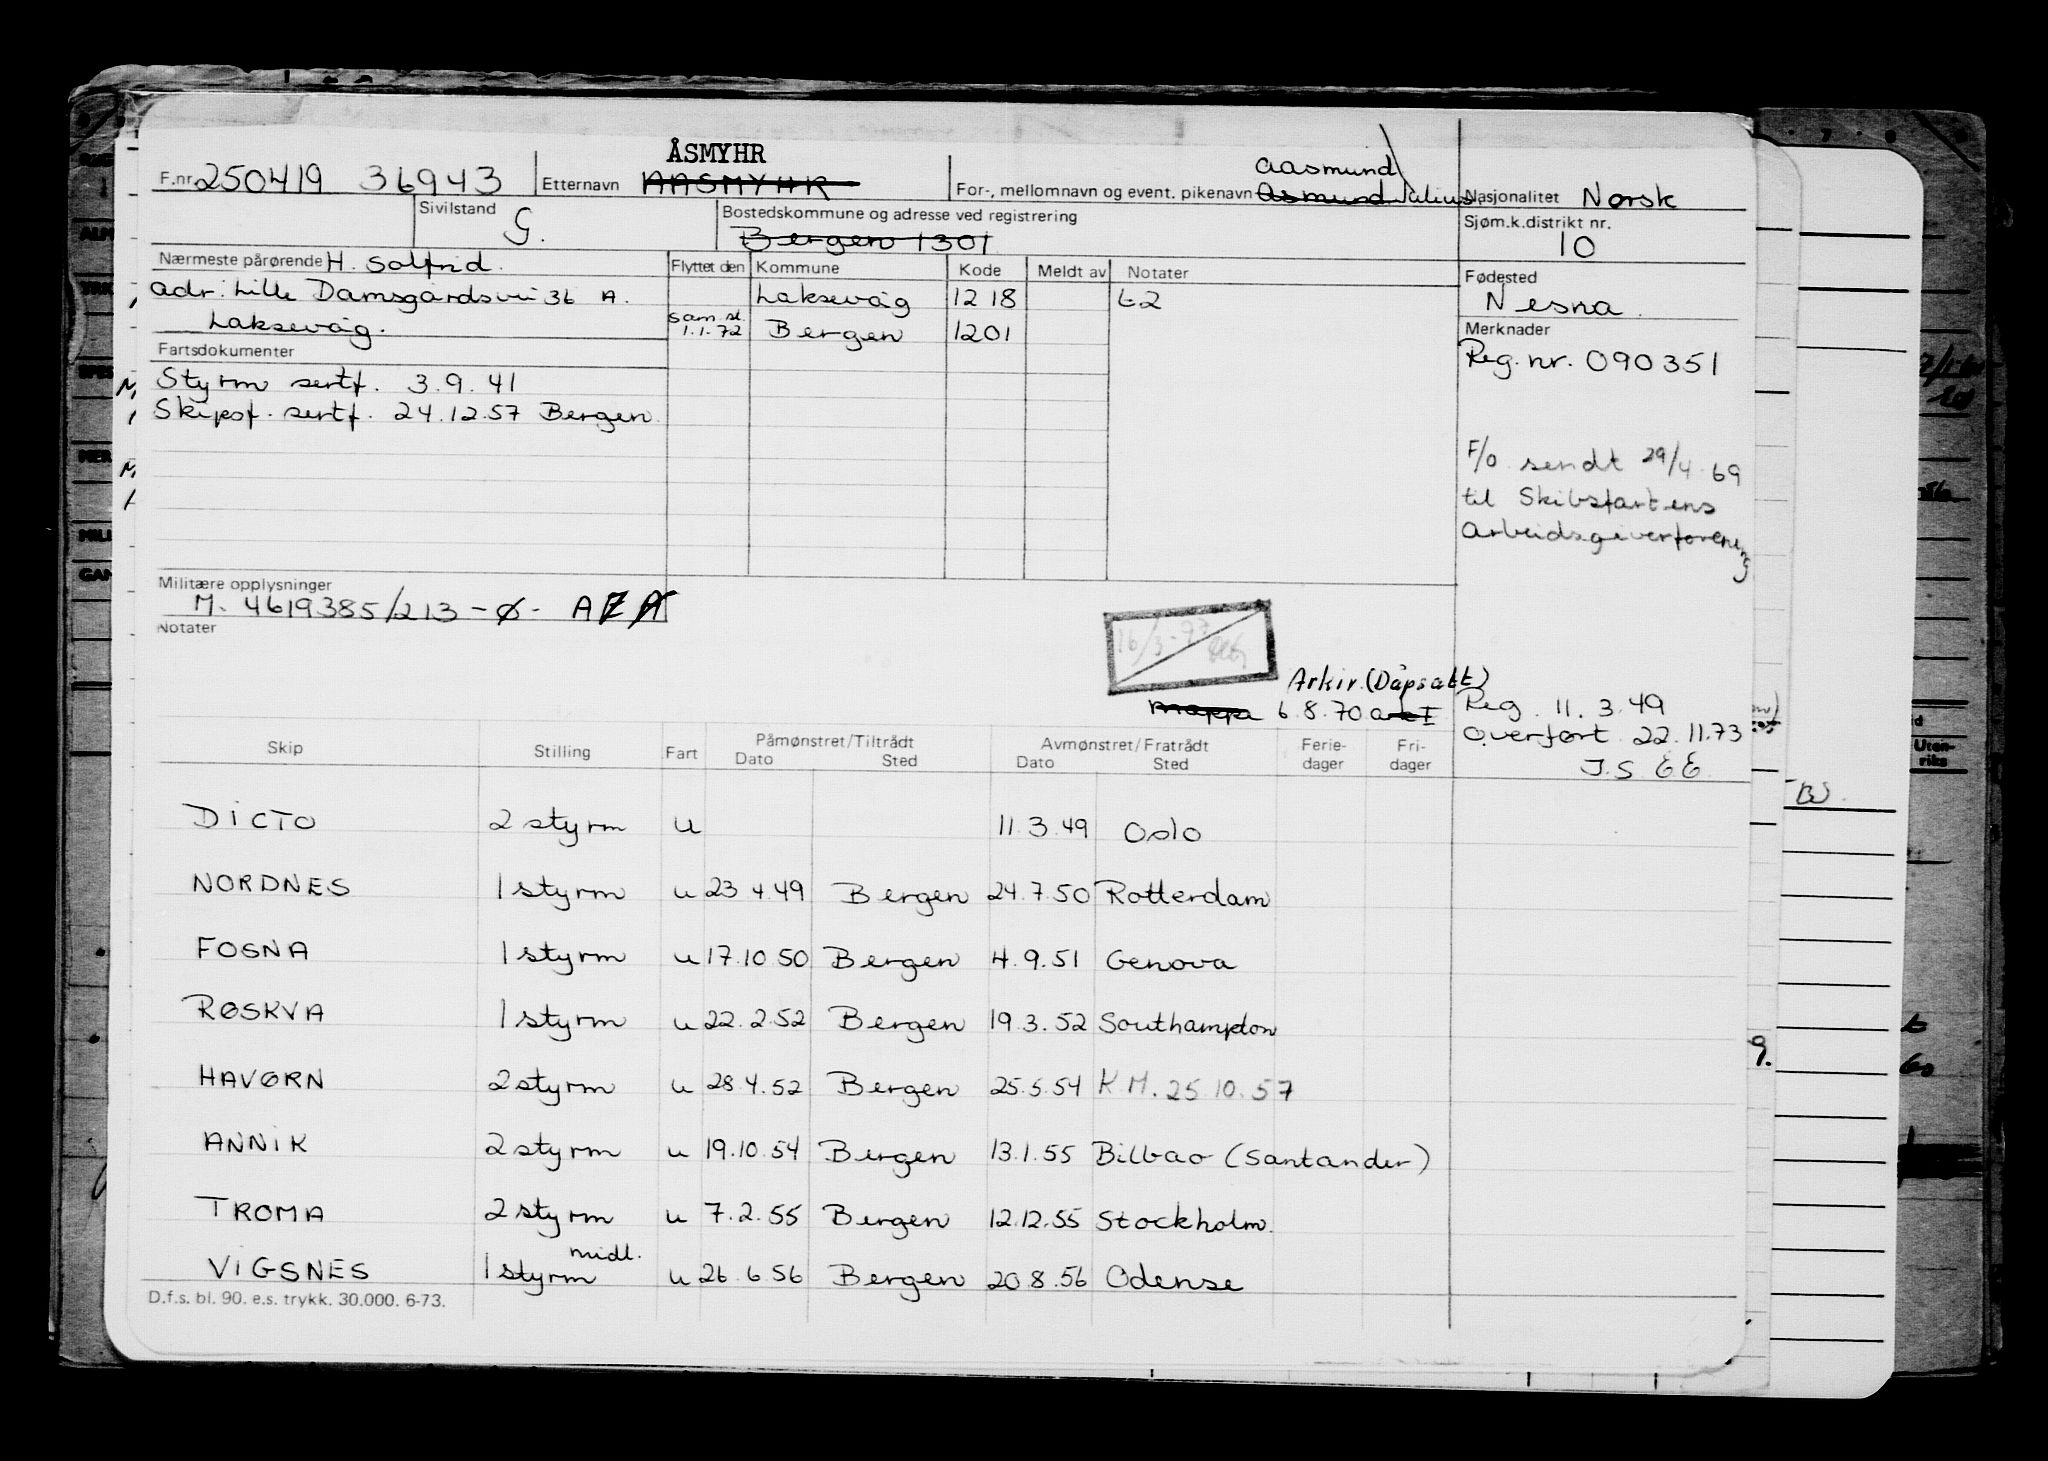 ÅSMYHR
F.nr. 250419 36943 Etternavn AASMYHR For-, mellomnavn og event. pikenavn Aasmund Asmund Julius Nasjonalitet Norsk
Sivilstand G. Bostedskommune og adresse ved registrering Bergen 1301 Sjøm.k.distrikt nr. 10
Nærmeste pårørende H. Solfrid. Flyttet den Kommune Kode Meldt av Notater Fødested
adr: Lille Damsgårdsvei 36 A. Laksevåg 1218 t2 Nesna.
Laksevåg. sam.st. 1.1.72 Bergen 1201 Merknader
Fartsdokumenter Reg. nr. 090351
Styrm sertf. 3.9.41
Skipsf. sertf. 24.12.57 Bergen
F/o sendt 29/4.69
til Skibsfartens
Arbeidsgiverforening
Militære opplysninger
M. 4619385/213 - Ø - A
Notater
16/3-77
Arkiv. (Dåpsatt)
mappa 6.8.70 Reg. 11.3.49
Overført 22.11.73
J.S EE
Skip Stilling Fart Påmønstret/Tiltrådt Avmønstret/Fratrådt Ferie- Fri-
Dato Sted Dato Sted dager dager
DICTO 2 styrm u 11.3.49 Oslo
NORDNES 1 styrm u 23 4.49 Bergen 24.7.50 Rotterdam
FOSNA 1 styrm u 17.10.50 Bergen 4.9.51 Genova
RØSKVA 1 styrm u 22.2.52 Bergen 19.3.52 Southampton
HAVØRN 2 styrm u 28.4.52 Bergen 25.5.54 K M. 25.10.57
ANNIK 2 styrm u 19.10.54 Bergen 13.1.55 Bilbao (Santander)
TROMA 2 styrm u 7.2.55 Bergen 12.12.55 Stockholm.
midl.
VIGSNES 1 styrm u 26.6.56 Bergen 20.8.56 Odense
D.f.s. bl. 90. e.s. trykk. 30.000. 6-73.